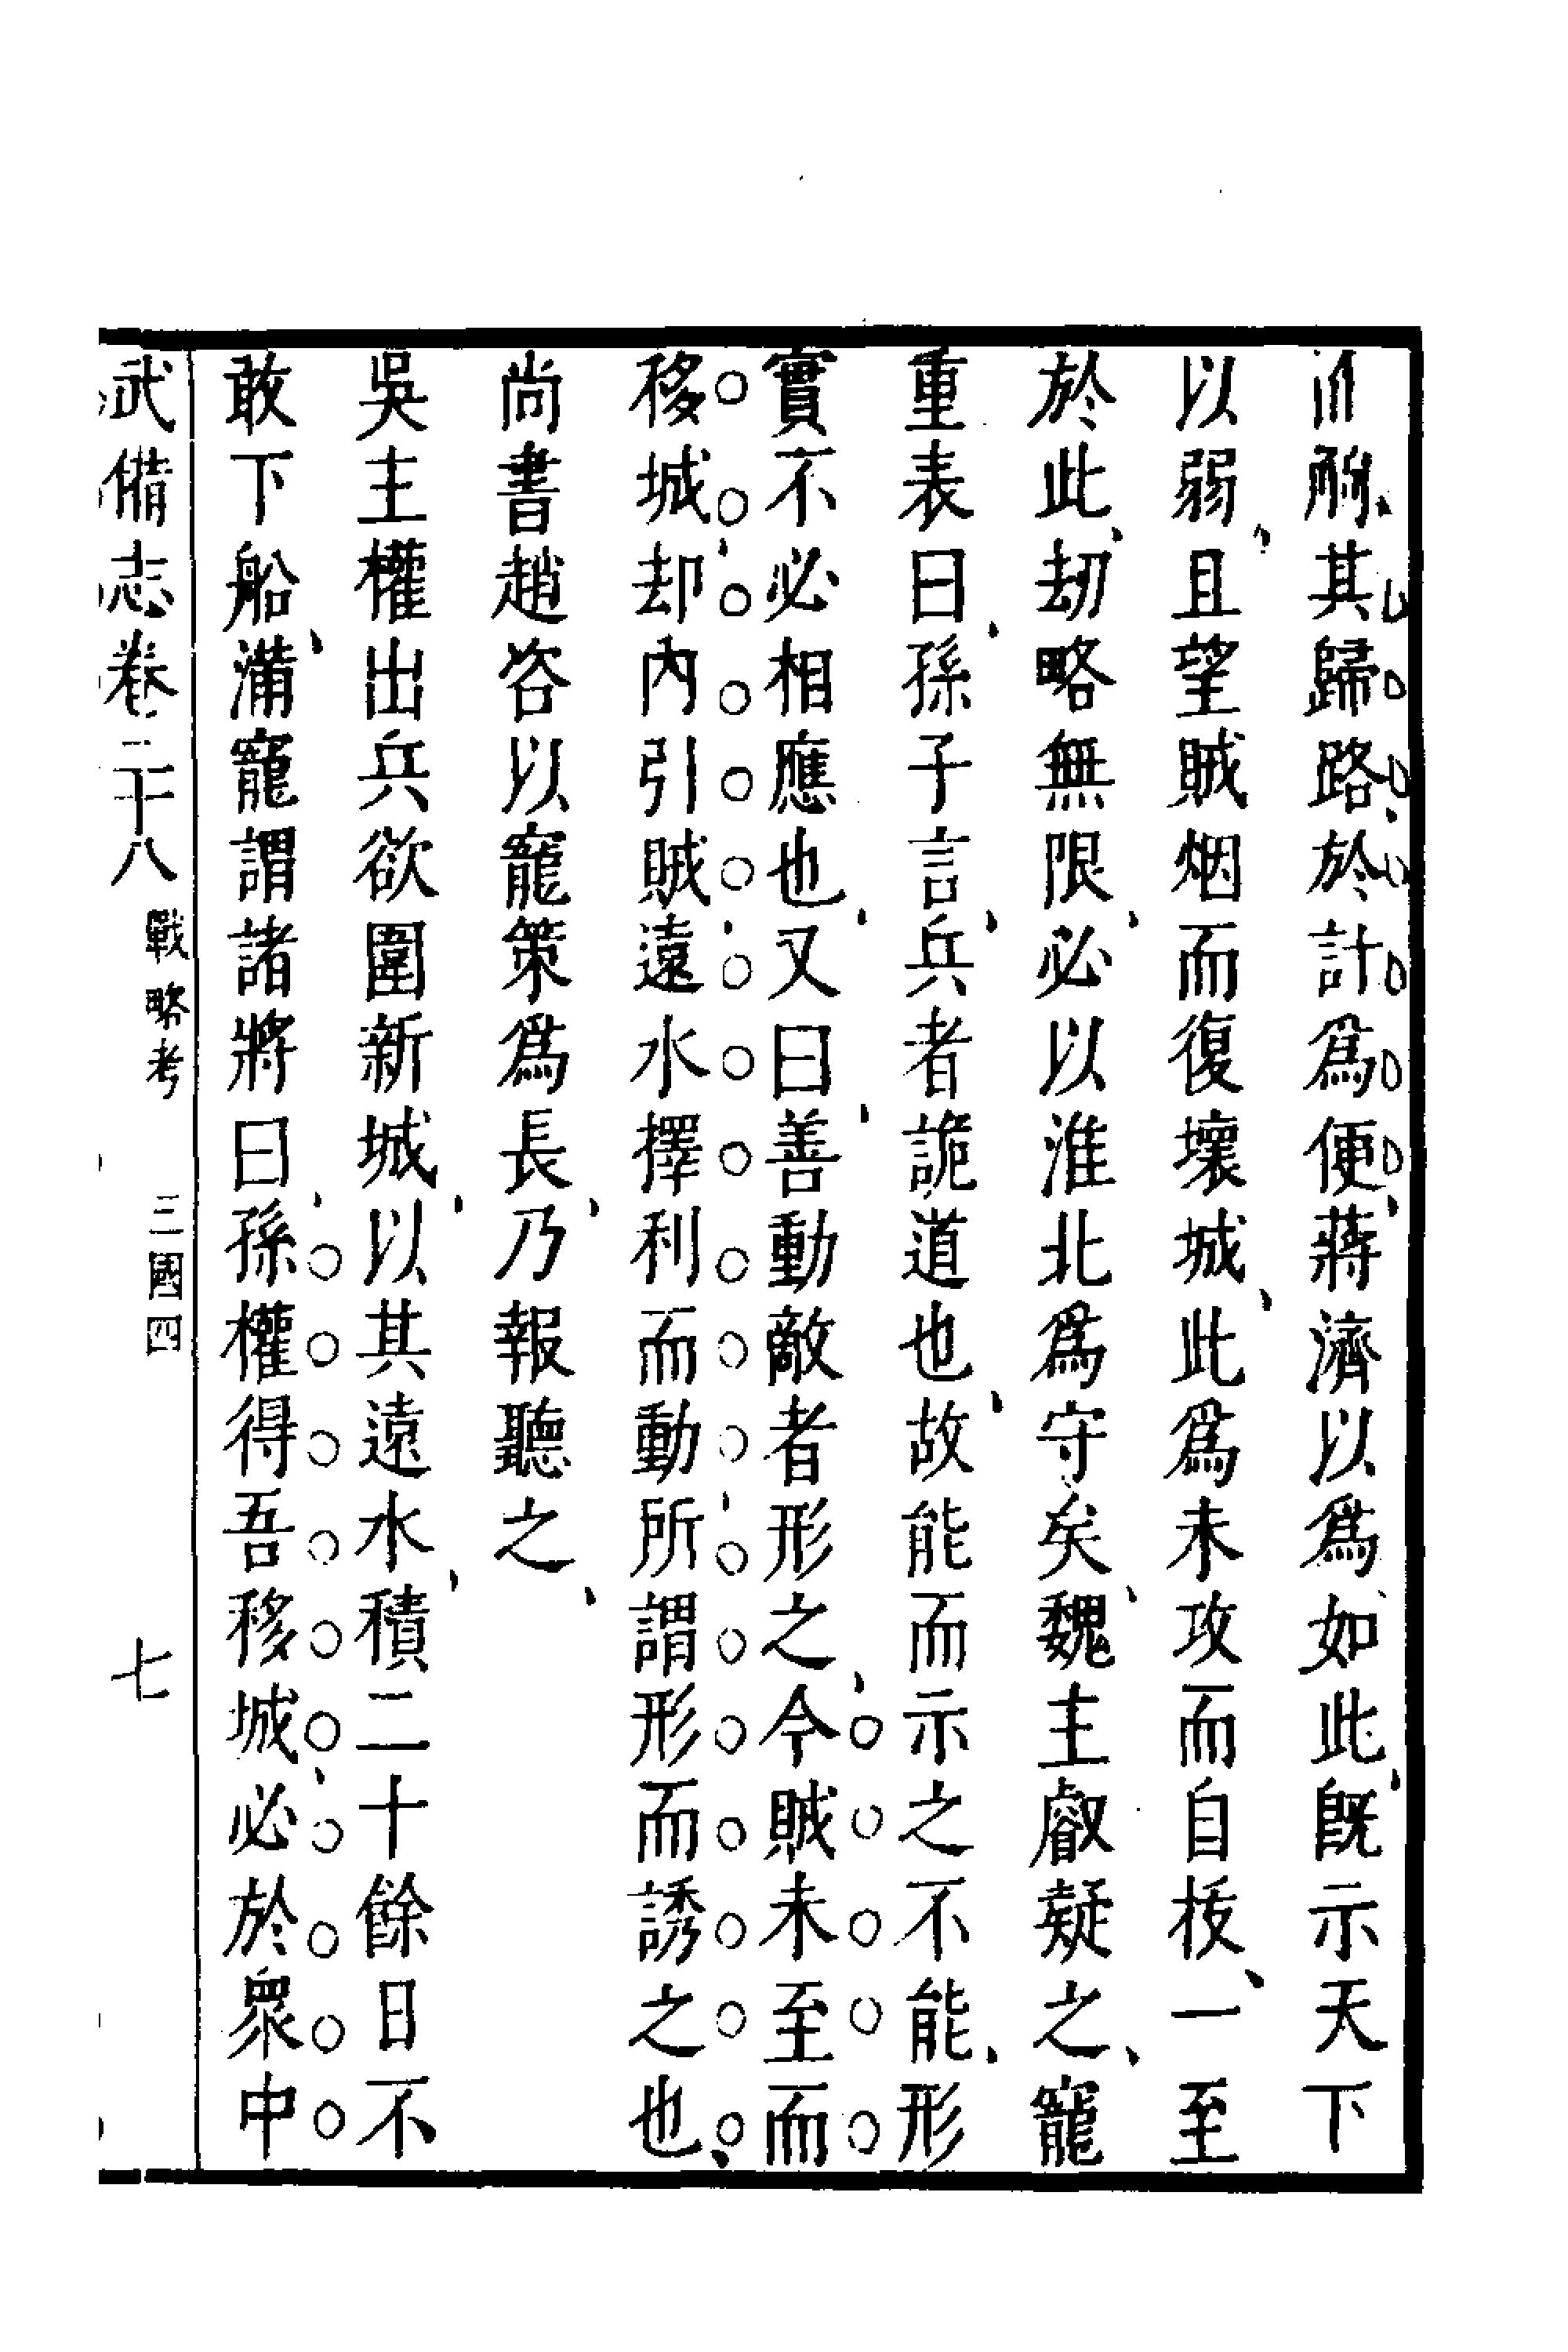 其歸路於計爲便蔣濟以爲如此既示天下
以弱且望賊烟而復壞城此爲未攻而自拔一至
於此劫略無限必以淮北爲守矣魏主叡疑之寵
重表曰孫子言兵者詭道也故能而示之不能形
實不必相應也又曰善動敵者形之今賊未至而
移城却內引賊遠水擇利而動所謂形而誘之也
尚書趙咨以寵策爲長乃報聽之
吳主權出兵欲圍新城以其遠水積二十餘日不
敢下船滿寵謂諸將曰孫權得吾移城必於衆中
武備志卷二十八 戰略考 三國四 七